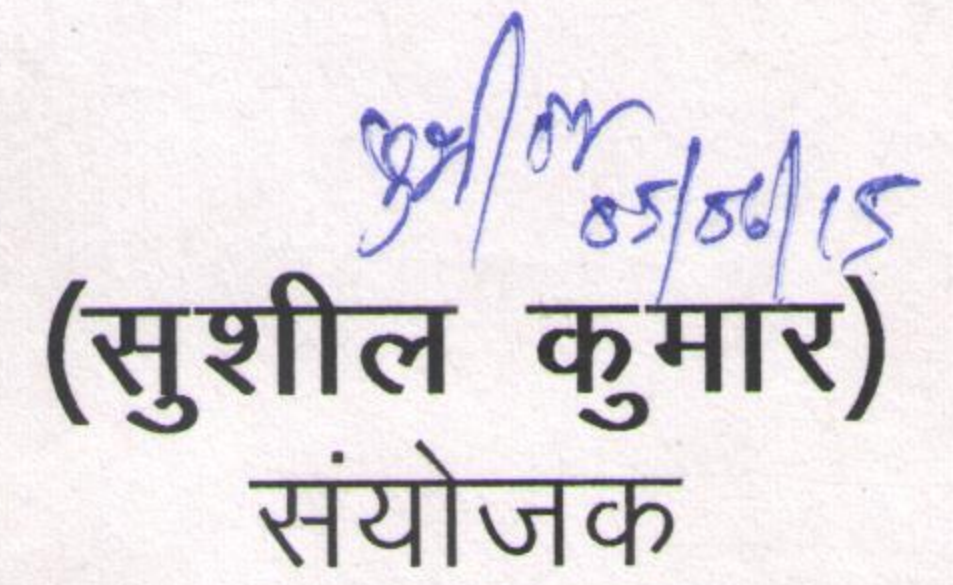 सुशील
05/06/15
(सुशील कुमार)
संयोजक